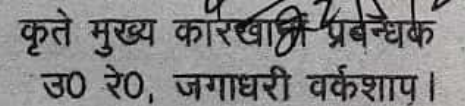 कृते मुख्य कारखाना प्रबन्धक
उ0 रे0, जगाधरी वर्कशाप।